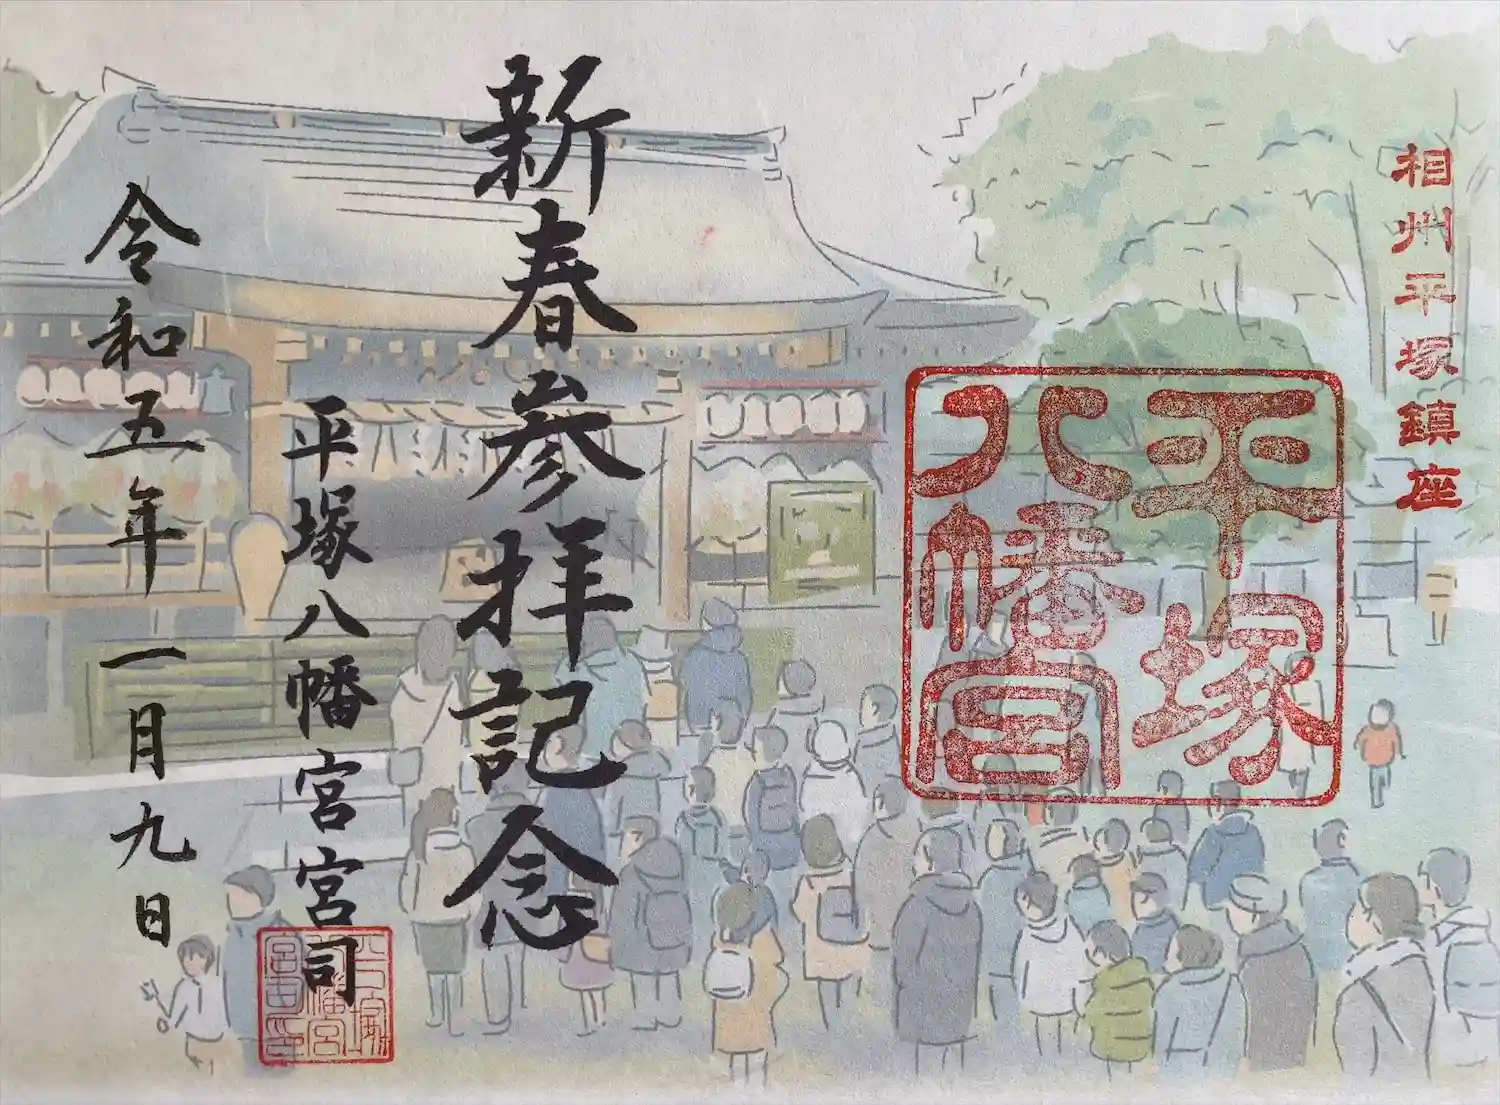 相州平塚鎮座
平塚
八幡宮
新春参拝記念
平塚八幡宮宮司
令和五年一月九日